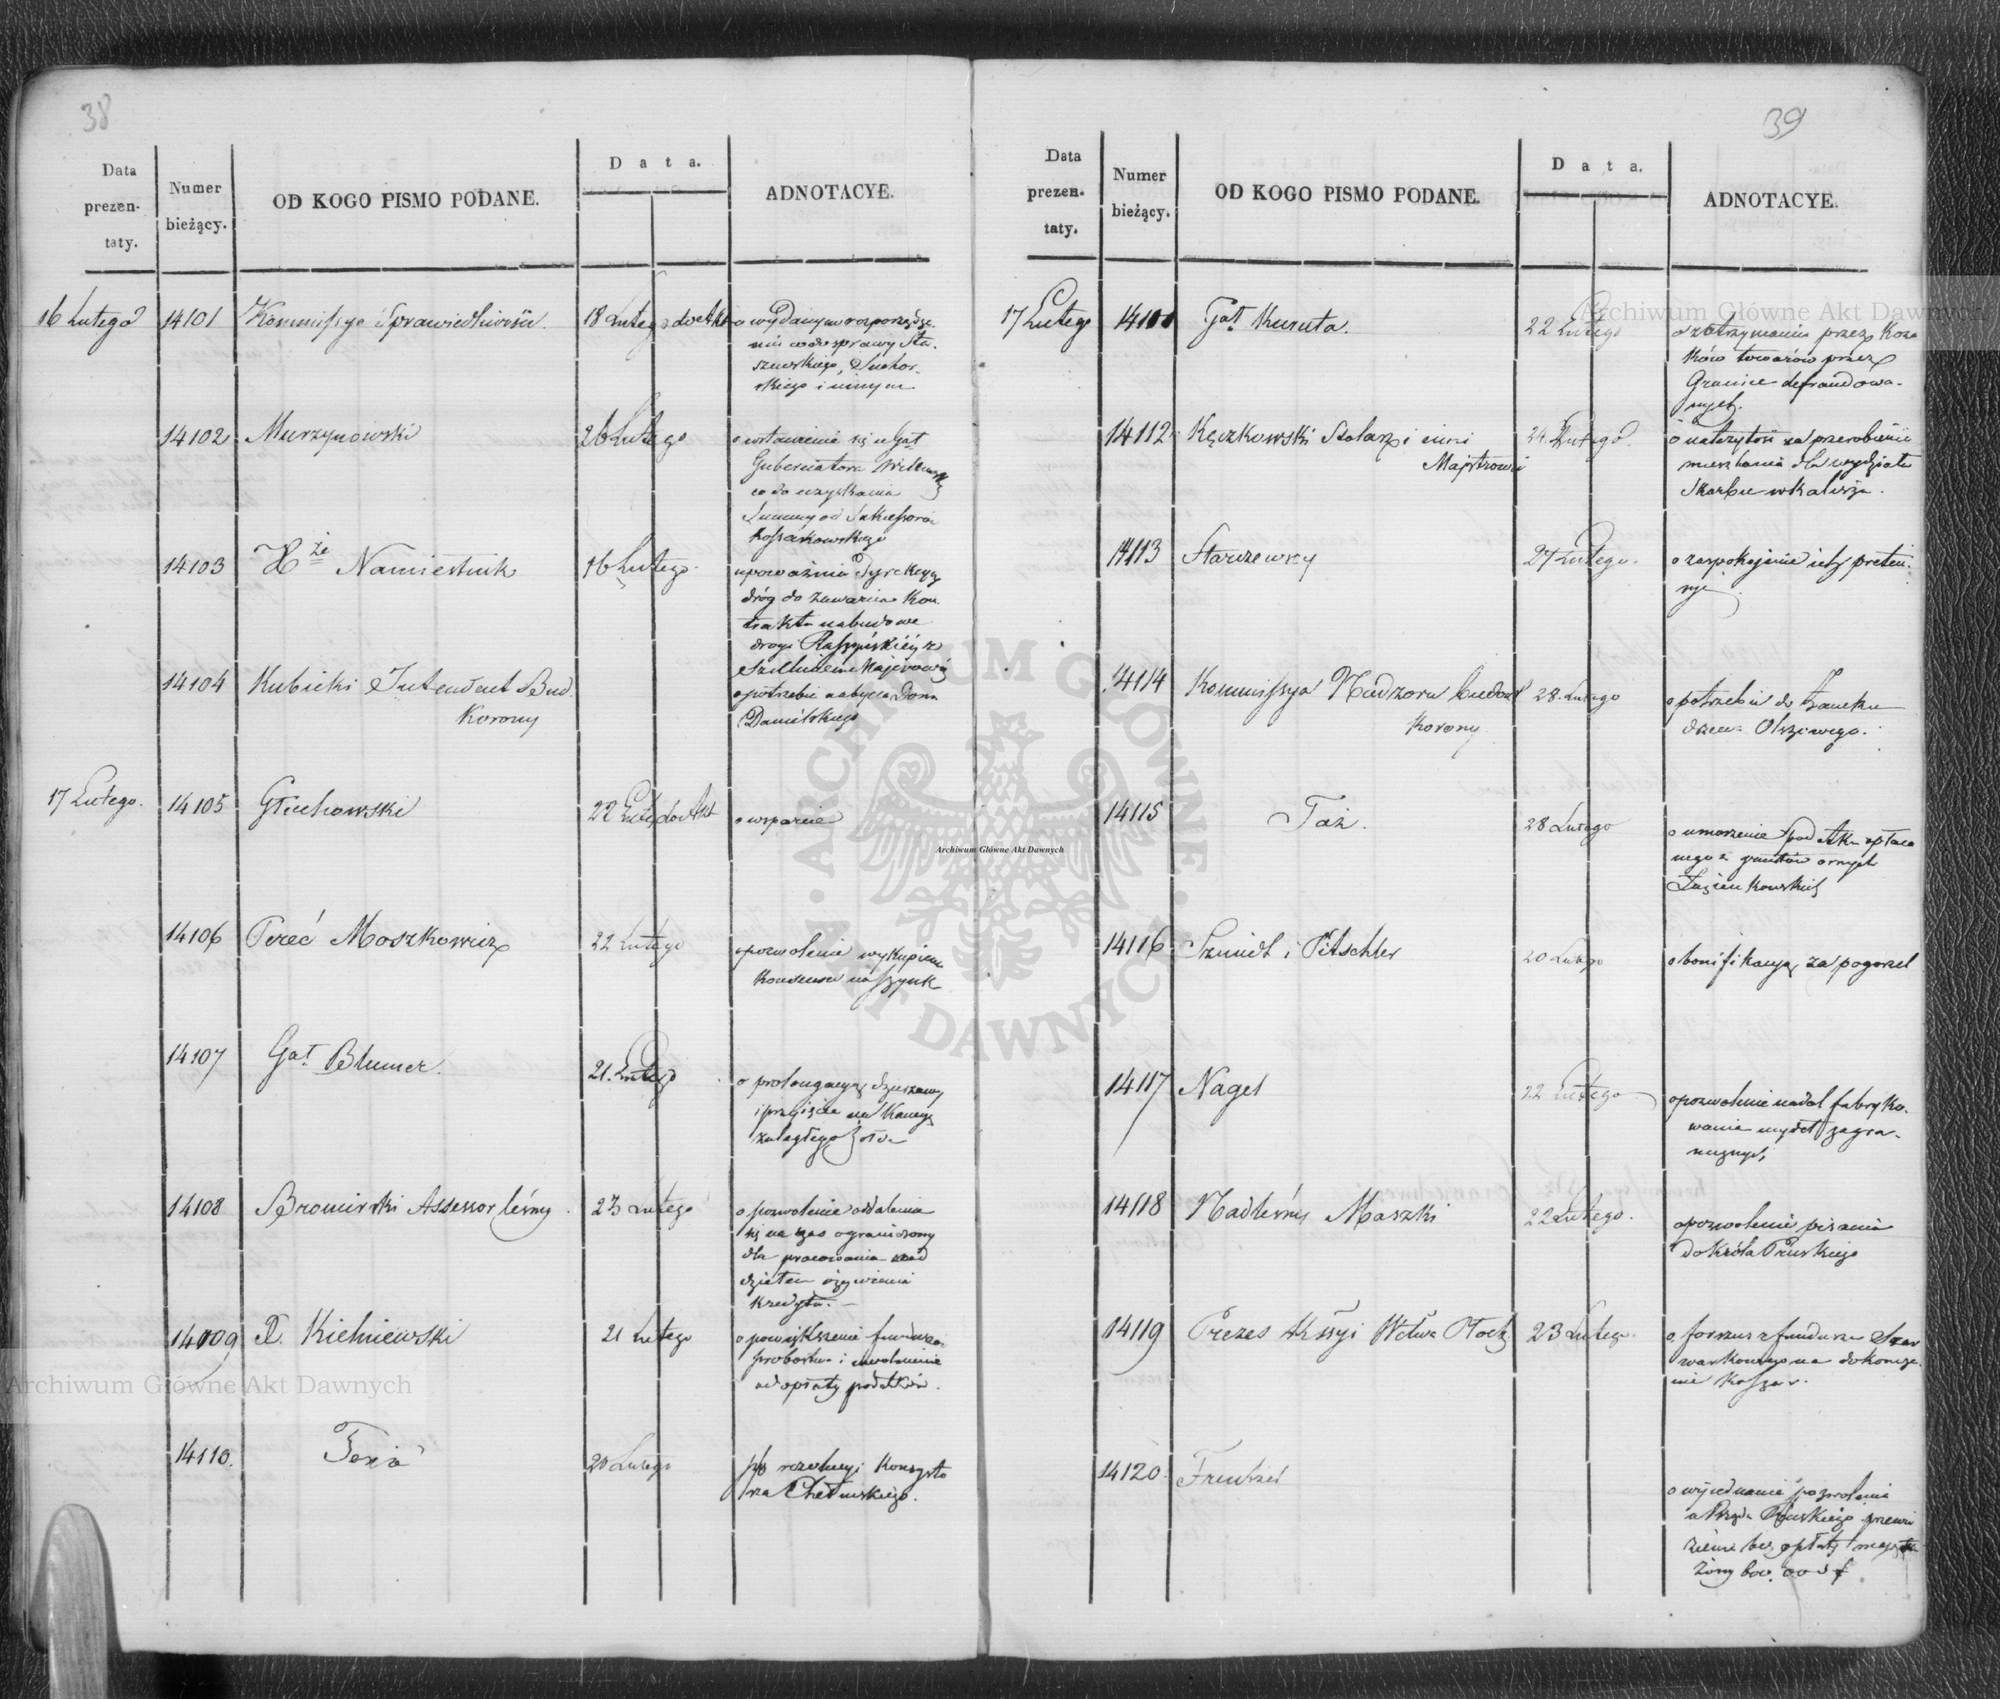 38
Data
prezen-
taty.
Numer
bieżący.
OD KOGO PISMO PODANE.
Data.
ADNOTACYE.
16 Lutego
14101
Kommissya Sprawiedliwości
18 Lutego do Akt
o wydanym rozporządze-
niu co do sprawy Sta-
szewskiego, Suchor-
skiego i innym
14102
Murzynowski
26 Lutego
o wstawienie się u Gał
Gubernatora
co do uzyskania
Summy od Sukcessorów
Kossakowskiego
14103
Xże Namiestnik
16 Lutego
upoważnia Dyrekcyą
dróg do zawarcia Kon-
traktu na budowe
drogi
14104
Kubicki Intendent Bud.
Korony
o potrzebie nabycia Domu
Danielskiego
17 Lutego.
14105
Głuchowski
22 Lutego do Akt
o wsparcie
14106
Perec Moszkowicz
22 Lutego
o pozwolenie wykupienia
Konsensu na szynk
14107
Gał Blumer.
21. Lutego
o prolongacyą dzierzawy
i przyjęcie na Kaucyą
zaległego żołdu
14108
Bromirski Assessor leśny
23 Lutego
o pozwolenie oddalenia
się na czas ograniczony
dla pracowania nad
dziełem ożywienia
Kredytu.
14109
X. Kielniewski
21 Lutego
o powiększenie funduszu
probostwa i uwolnienie
od opłaty podatków.
14110.
Tenże
20 Lutego
po rezolucyi Konsysto
rza Chełmskiego.
39
Data
prezen-
taty.
Numer
bieżący.
OD KOGO PISMO PODANE.
Data.
ADNOTACYE.
17 Lutego
Gał Kuruta.
22 Lutego
o zatrzymaniu przez Koza
ków towarów przez
Granice defraudowa-
nych.
14112
Kęczkowski Stolarz i inni
Majstrowie
24. Lutego.
o należytość za przerobienie
mieszkania dla wydziału
Skarbu w Kaliszu.
14113
Starzewscy
27 Lutego.
o zaspokojenie ich preten-
syi
14114
Kommissya Nadzoru budowl
Korony
28. Lutego
o potrzebie do Zamku
drzewa Olszowego.
14115
Taż.
28 Lutego
o umorzenie podatku opłaca
nego z gruntów ornych
Łazienkowskich
14116
Szmidt i Pitschler
20 Lutego
o bonifikacyą za pogorzel
14117
Nagel
22 Lutego
o pozwolenie nadal fabryko-
wania mydeł zagra-
nicznych
14118
Nadleśny Maszki
22 Lutego.
o pozwolenie pisania
do Króla Pruskiego
14119
Prezes Kssyi Wdtwa Płock
23 Lutego.
o forszus z funduszu Szar
warkowego na dokończe-
nie Koszar.
14120.
o wyjednanie pozwolenia
u Rządu Pruskiego przewie
zienia bez opłaty
Archiwum Główne Akt Dawnych
Archiwum Główne Akt Dawnych
Archiwum Główne Akt Dawnych
ARCHIWUM GŁÓWNE AKT DAWNYCH